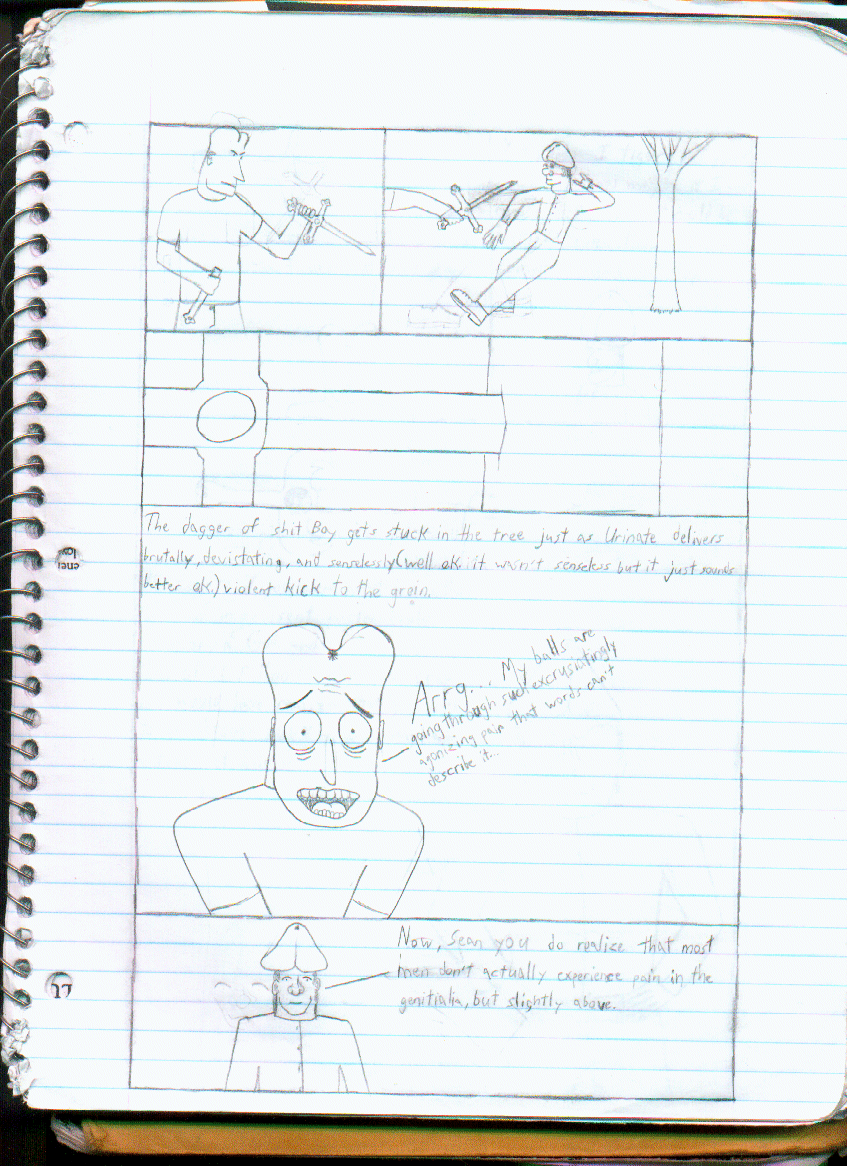 The dagger of shit Boy gets stuck in the tree just as Urinate delivers
brutally, devistating, and senselessly(well ok. it wasn't senseless but it just sounds
better ok.) violent kick to the groin.
Arrg... My balls are
going through such excrusiatingly
agonizing pain that words can't
describe it...
Now, Sean you do realize that most
men don't actually experience pain in the
genitialia, but slightly above.
17